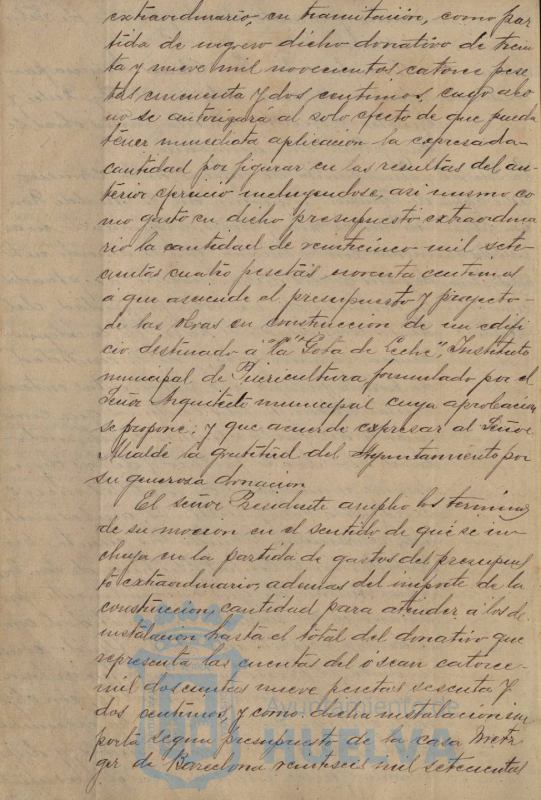 extraordinario, en tramitación, como par
tida de ingreso dicho donativo de trein
ta y nueve mil novecientas catorce pese
tas cincuenta y dos centimos, cuyo abo
no se autorizará al solo efecto de que pueda
tener inmediata aplicacion la expresada
cantidad por figurar en las resultas del an-
terior ejercicio incluyendose, asi mismo co
mo gasto en dicho presupuesto extraordina
rio la cantidad de veinticinco mil sete-
cientas cuatro pesetas noventa centimos
a que asciende el presupuesto y proyecto
de las obras en construccion de un edifi
cio destinado á "la Gota de Leche", Instituto
municipal de Puericultura formulado por el
Señor Arquitecto municipal cuya aprobacion
se propone; y que acuerde expresar al Señor
Alcalde la gratitud del Ayuntamiento por
su generosa donacion
El señor Presidente amplio los terminos
de su mocion en el sentido de que se in-
cluya en la partida de gastos del presupues
to extraordinario, ademas del importe de la
construccion, cantidad para atender á los de
instalacion hasta el total del donativo que
representa las cuentas del ó sean catorce
mil doscientas nueve pesetas sesenta y
dos centimos, y como dicha instalacion im
porta segun presupuesto de la casa Metz
ger de Barcelona veintiseis mil setecientas
Ayuntamiento de
HUELVA